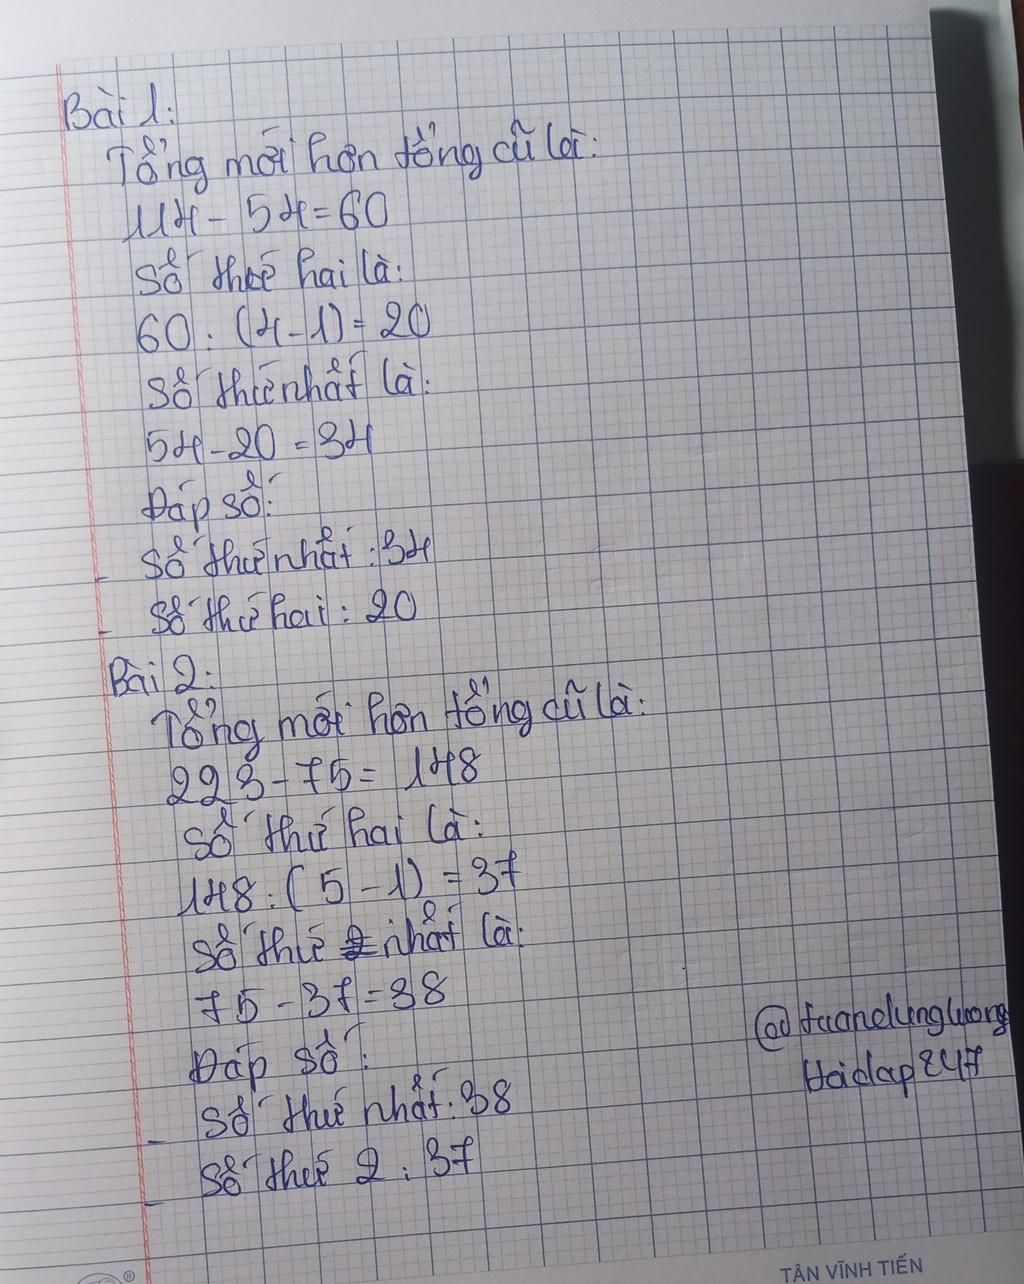 Bài 1:
Tổng mới hơn tổng cũ là:
114 - 54 = 60
Số thứ hai là:
60 : (4-1) = 20
Số thứ nhất là:
54 - 20 = 34
Đáp số:
- Số thứ nhất : 34
- Số thứ hai : 20
Bài 2:
Tổng mới hơn tổng cũ là:
223 - 75 = 148
Số thứ hai là:
148 : (5 - 1) = 37
Số thứ nhất là:
75 - 37 = 38
Đáp số :
- Số thứ nhất : 38
- Số thứ 2 : 37
@tuandungluong
Hoidap247
TÂN VĨNH TIẾN
®